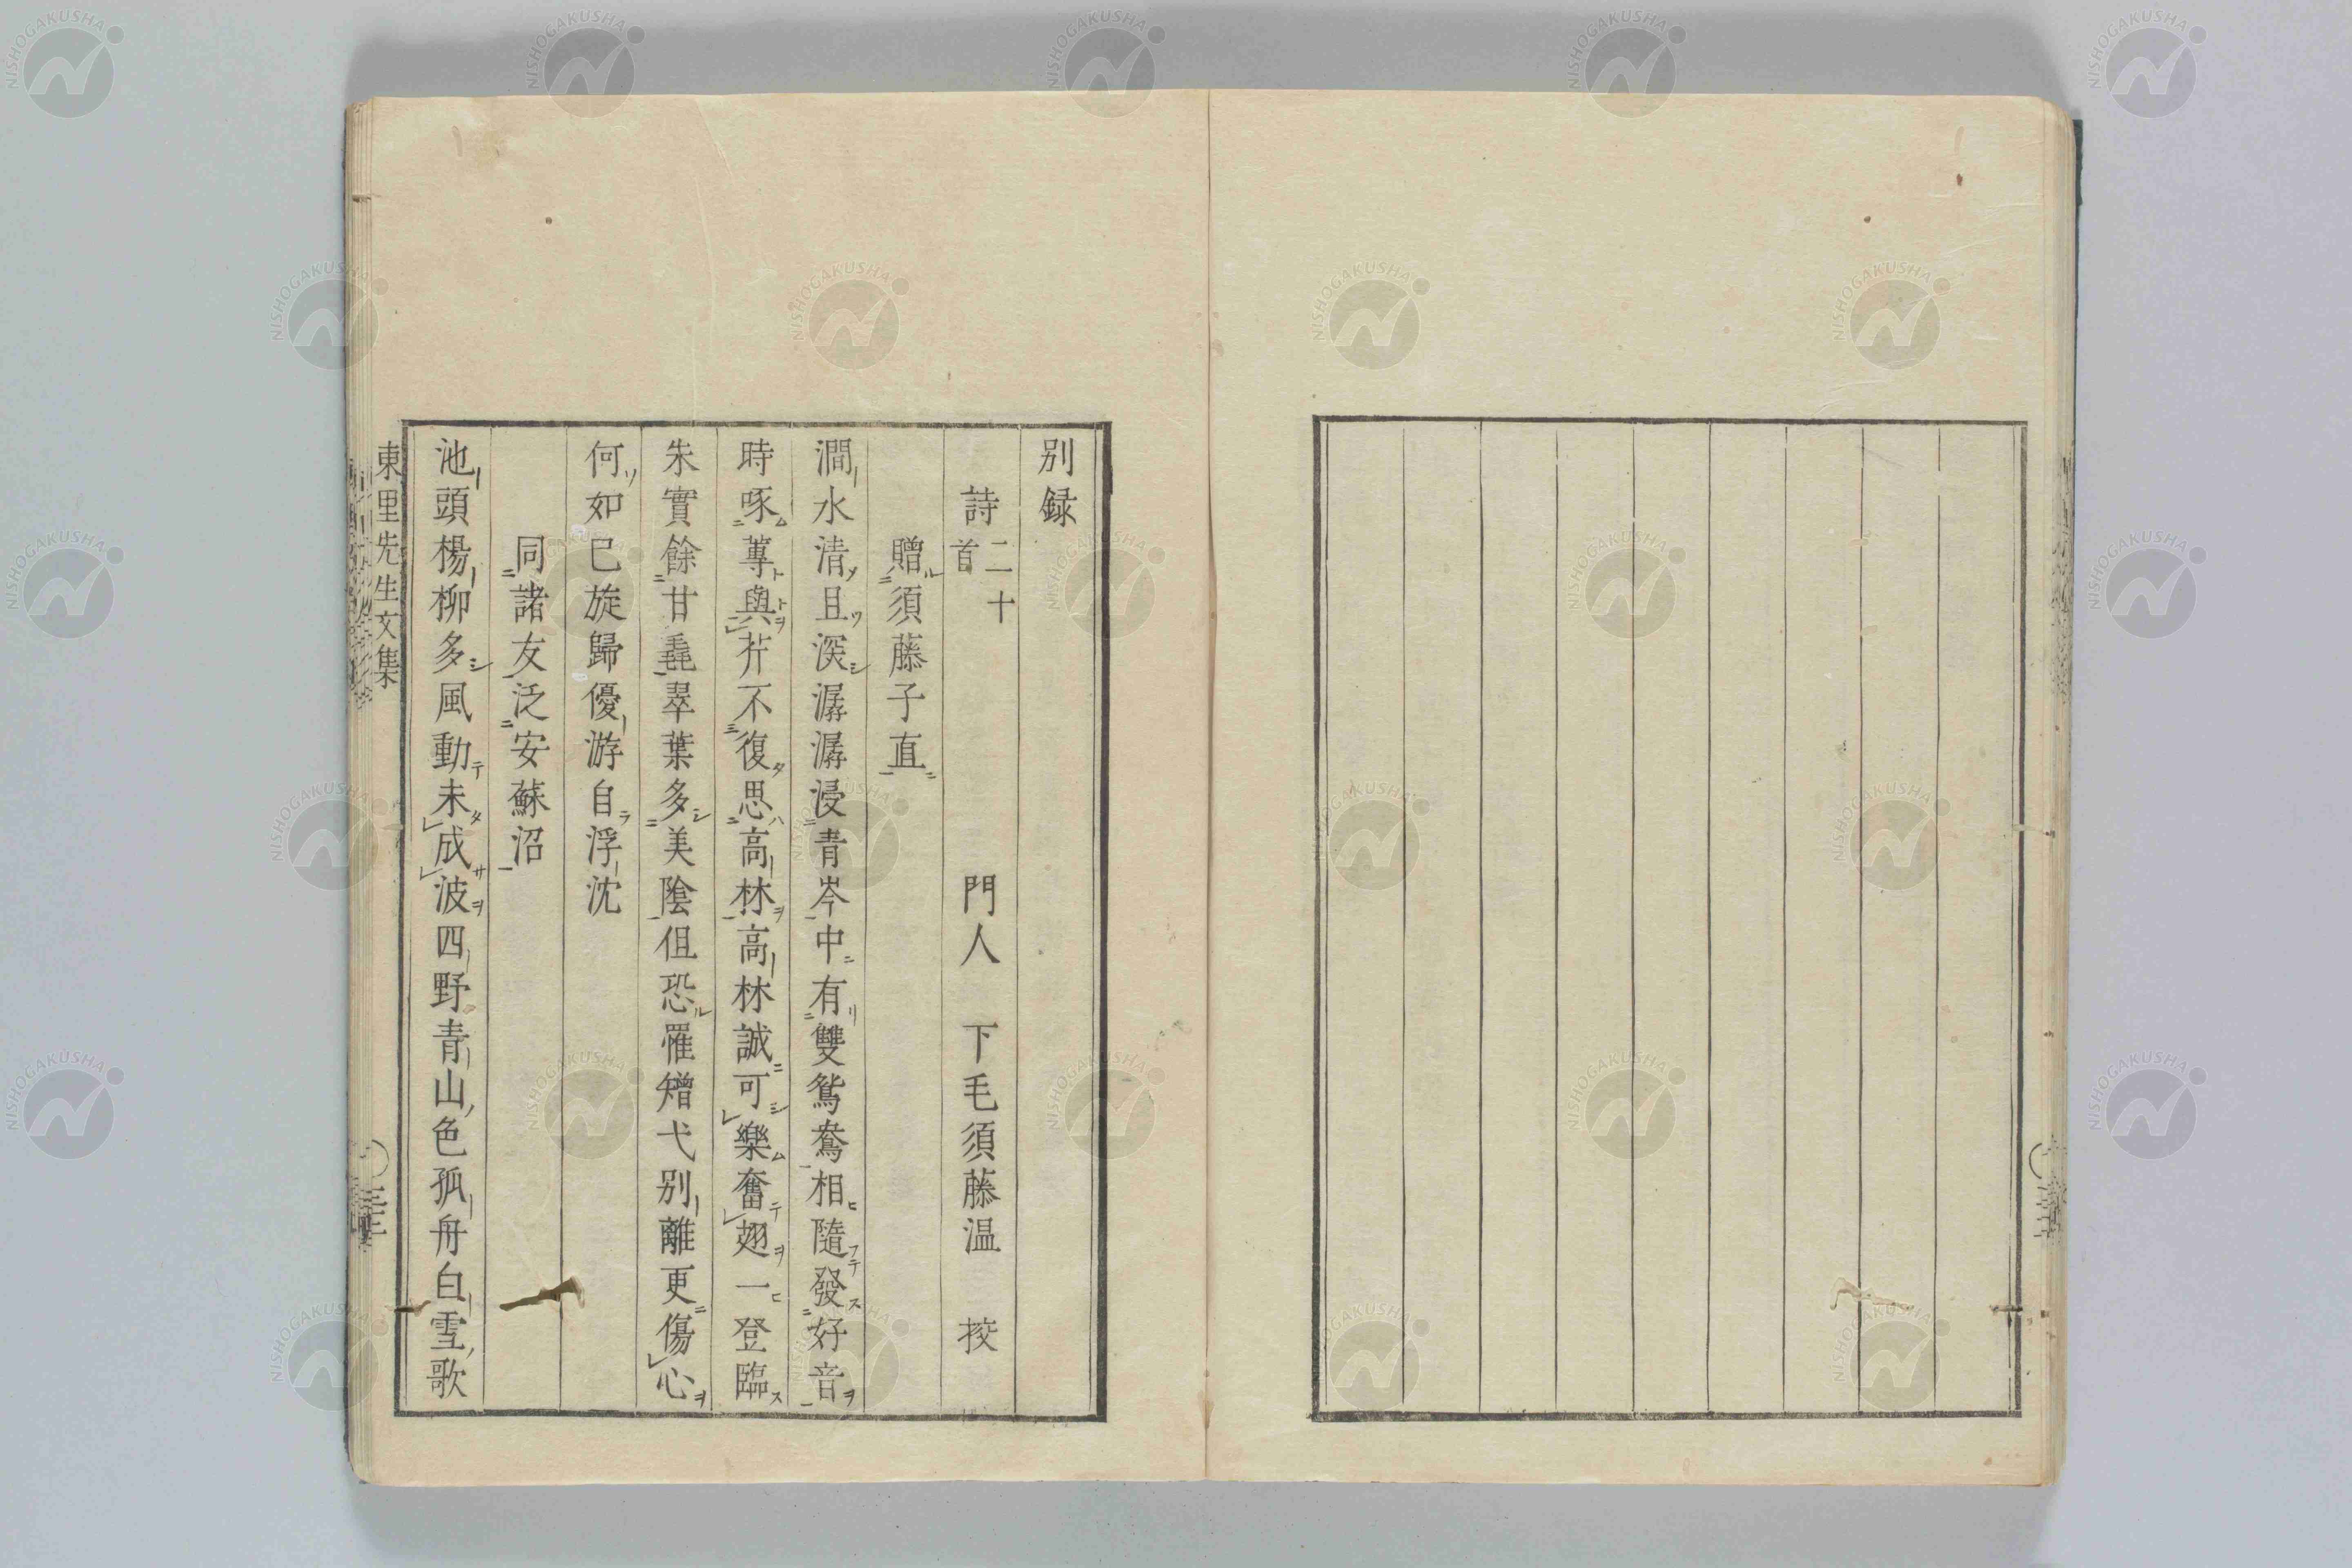 別録
詩二十首　門人　下毛須藤温　挍
贈須藤子直
澗水清且深潺潺浸青岑中有雙鴛鴦相隨發好音
時啄蓴與芹不復思高林高林誠可樂奮翅一登臨
朱實餘甘毳翠葉多美陰但恐罹矰弋別離更傷心
何如已旋歸優游自浮沈
同諸友泛安蘇沼
池頭楊柳多風動未成波四野青山色孤舟白雪歌
東里先生文集
NISHOGAKUSHA